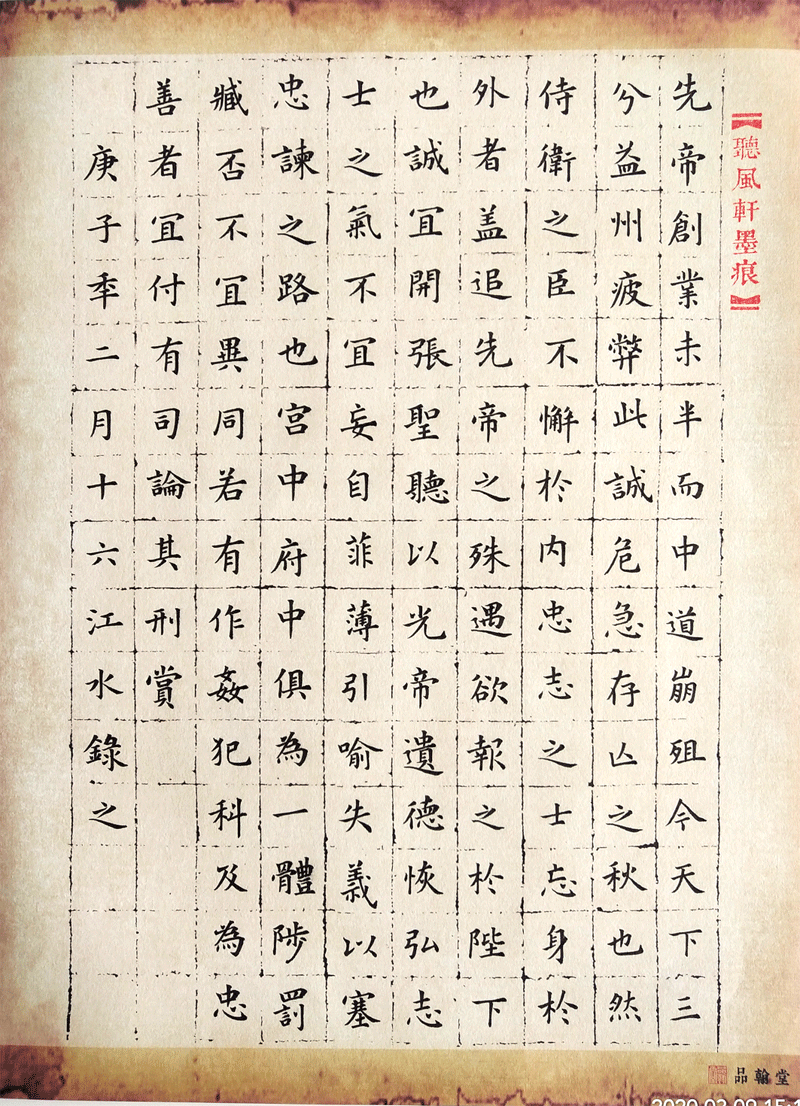 【聽風軒墨痕】
先帝創業未半而中道崩殂今天下三
分益州疲弊此誠危急存亡之秋也然
侍衛之臣不懈於内忠志之士忘身於
外者盖追先帝之殊遇欲報之於陛下
也誠宜開張聖聽以光帝遺德恢弘志
士之氣不宜妄自菲薄引喻失義以塞
忠諫之路也宮中府中俱為一體陟罰
臧否不宜異同若有作姦犯科及為忠
善者宜付有司論其刑賞
庚子年二月十六江水錄之
品翰堂